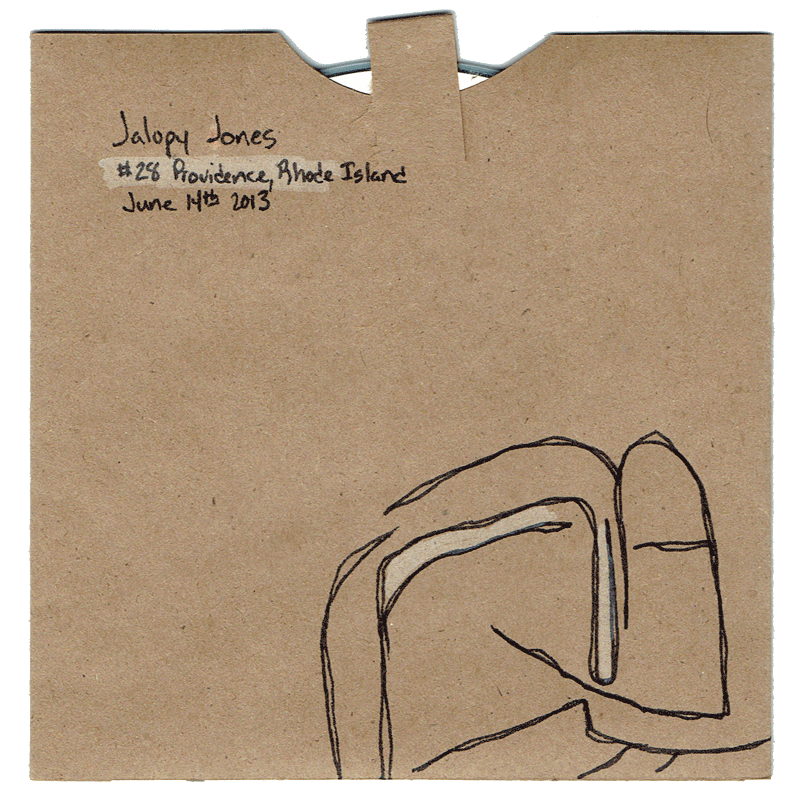 Jalopy Jones
#28 Providence, Rhode Island
June 14th 2013